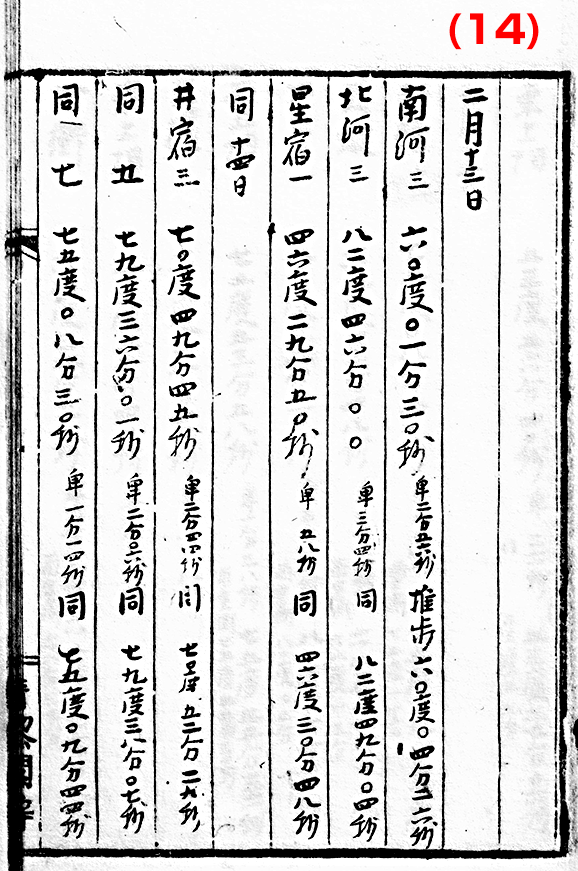 (14)
二月十三日
南河三 六〇度〇一分三〇秒 卑二分五六秒 推步六〇度〇四分二六秒
北河三 八二度四六分〇〇 卑三分四秒 同 八二度四九分〇四秒
星宿一 四六度二九分五〇秒 卑 五八秒 同 四六度三〇分四八秒
同 十四日
井宿三 七〇度四九分四五秒 卑二分四一秒 同 七〇度五二分二六秒
同 五 七九度三六分〇一秒 卑二分〇六秒 同 七九度三八分〇七秒
同 七 七五度〇八分三〇秒 卑一分一四秒 同 七五度〇九分四四秒